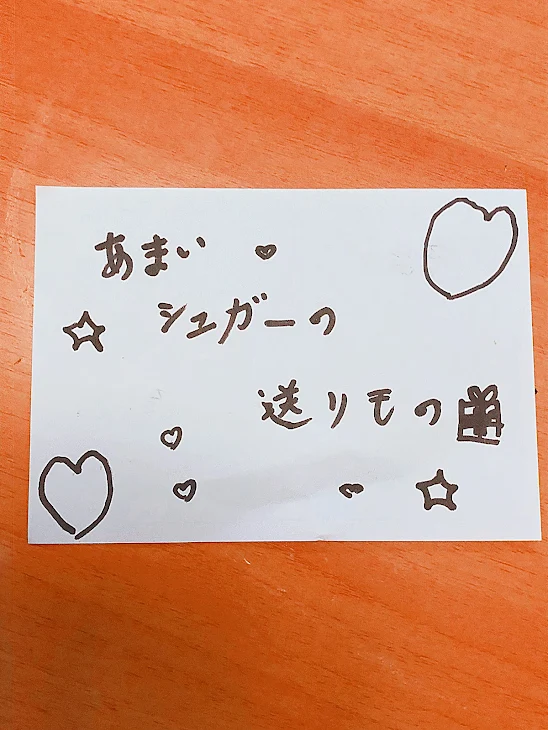 あまい
シュガーの
送りもの